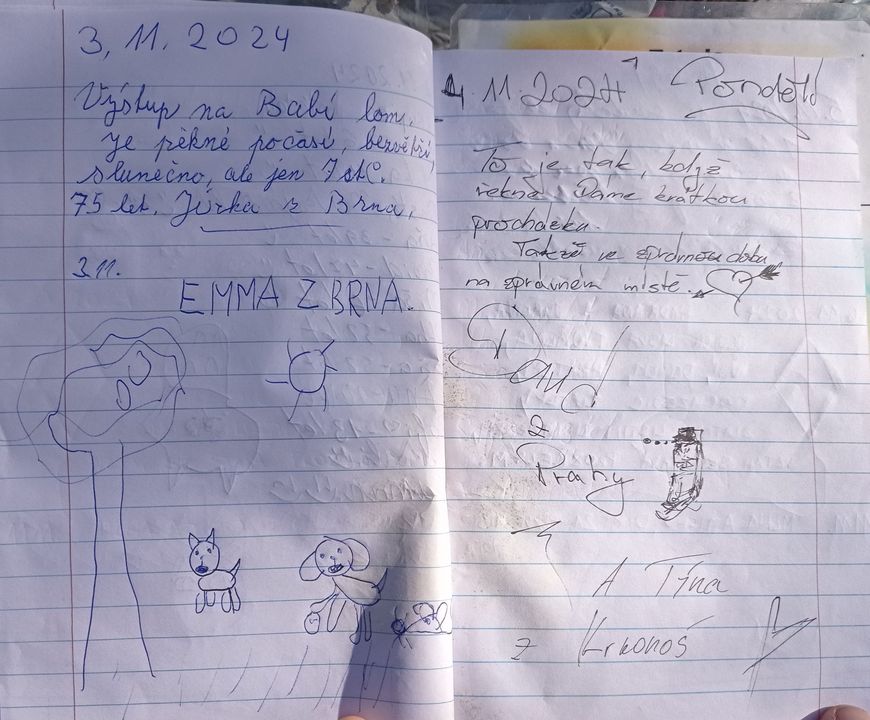 3. 11. 2024
Výstup na Babí lom.
Je pěkné počasí, bezvětří,
slunečno, ale jen 7 st C.
75 let. Jirka z Brna.
3.11.
EMMA Z BRNA.
4. 11. 2024 Pondělí
To je tak, když
řekne: Dáme krátkou
procházku.
Takže ve správnou dobu
na správném místě.
z
Prahy
A Týna
z Krkonoš